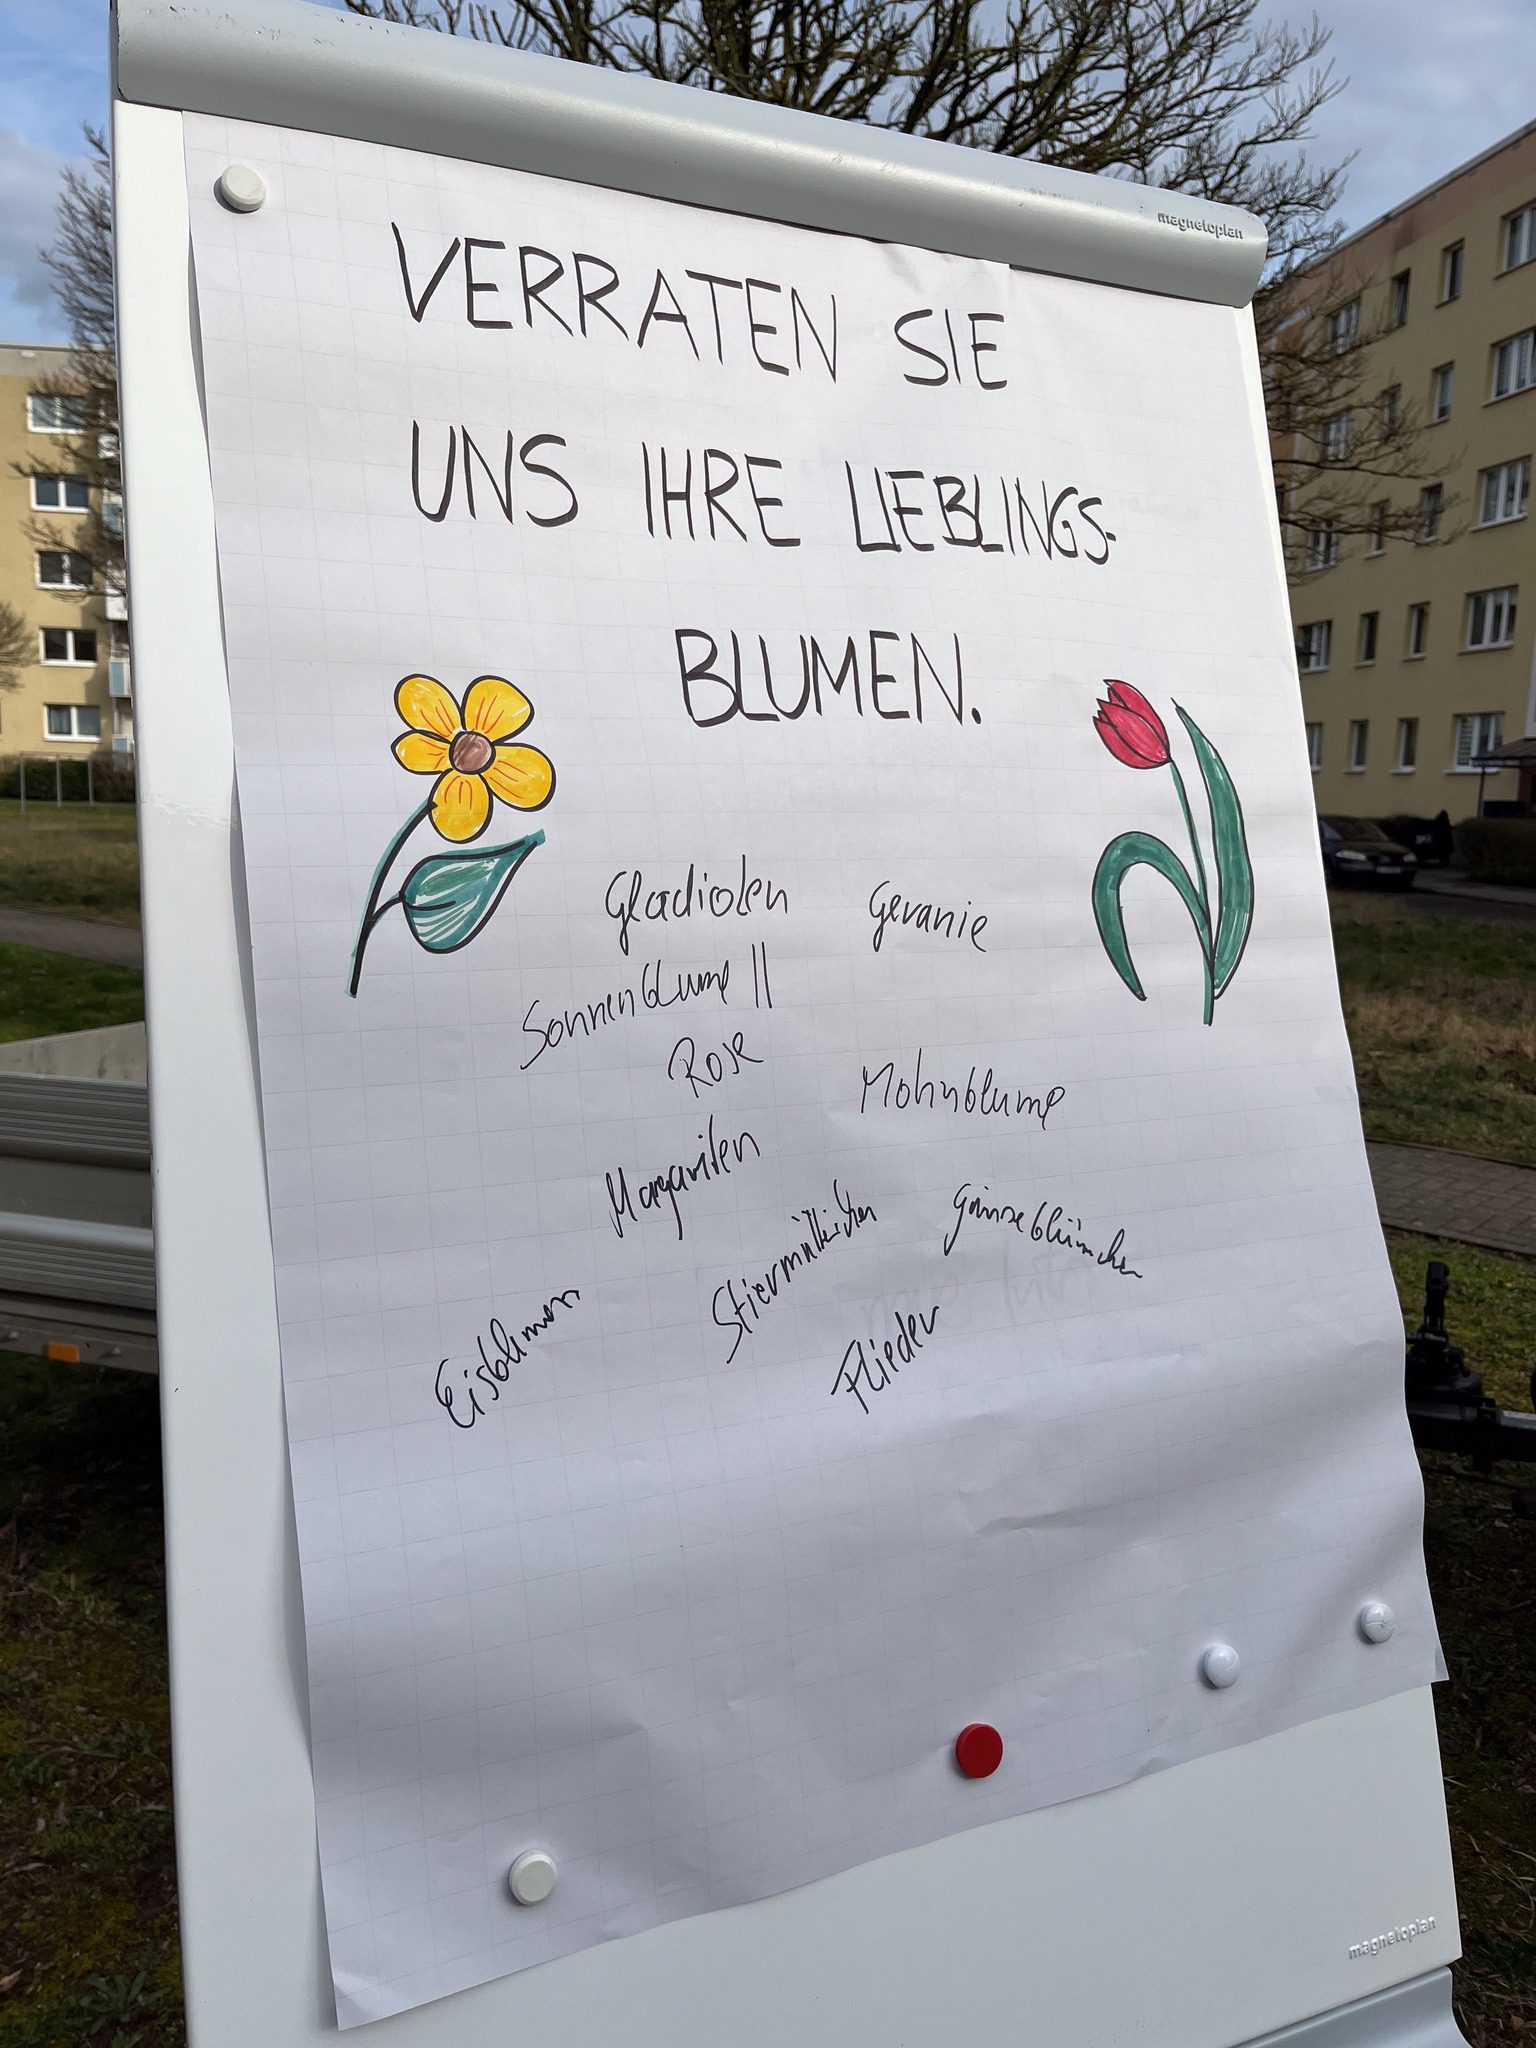 magnetoplan
VERRATEN SIE
UNS IHRE LIEBLINGS-
BLUMEN.
Gladiolen Geranie
Sonnenblume ||
Rose
Mohnblume
Margariten
Stiermütterchen
Gänseblümchen
Eisblumen
Flieder
magnetoplan